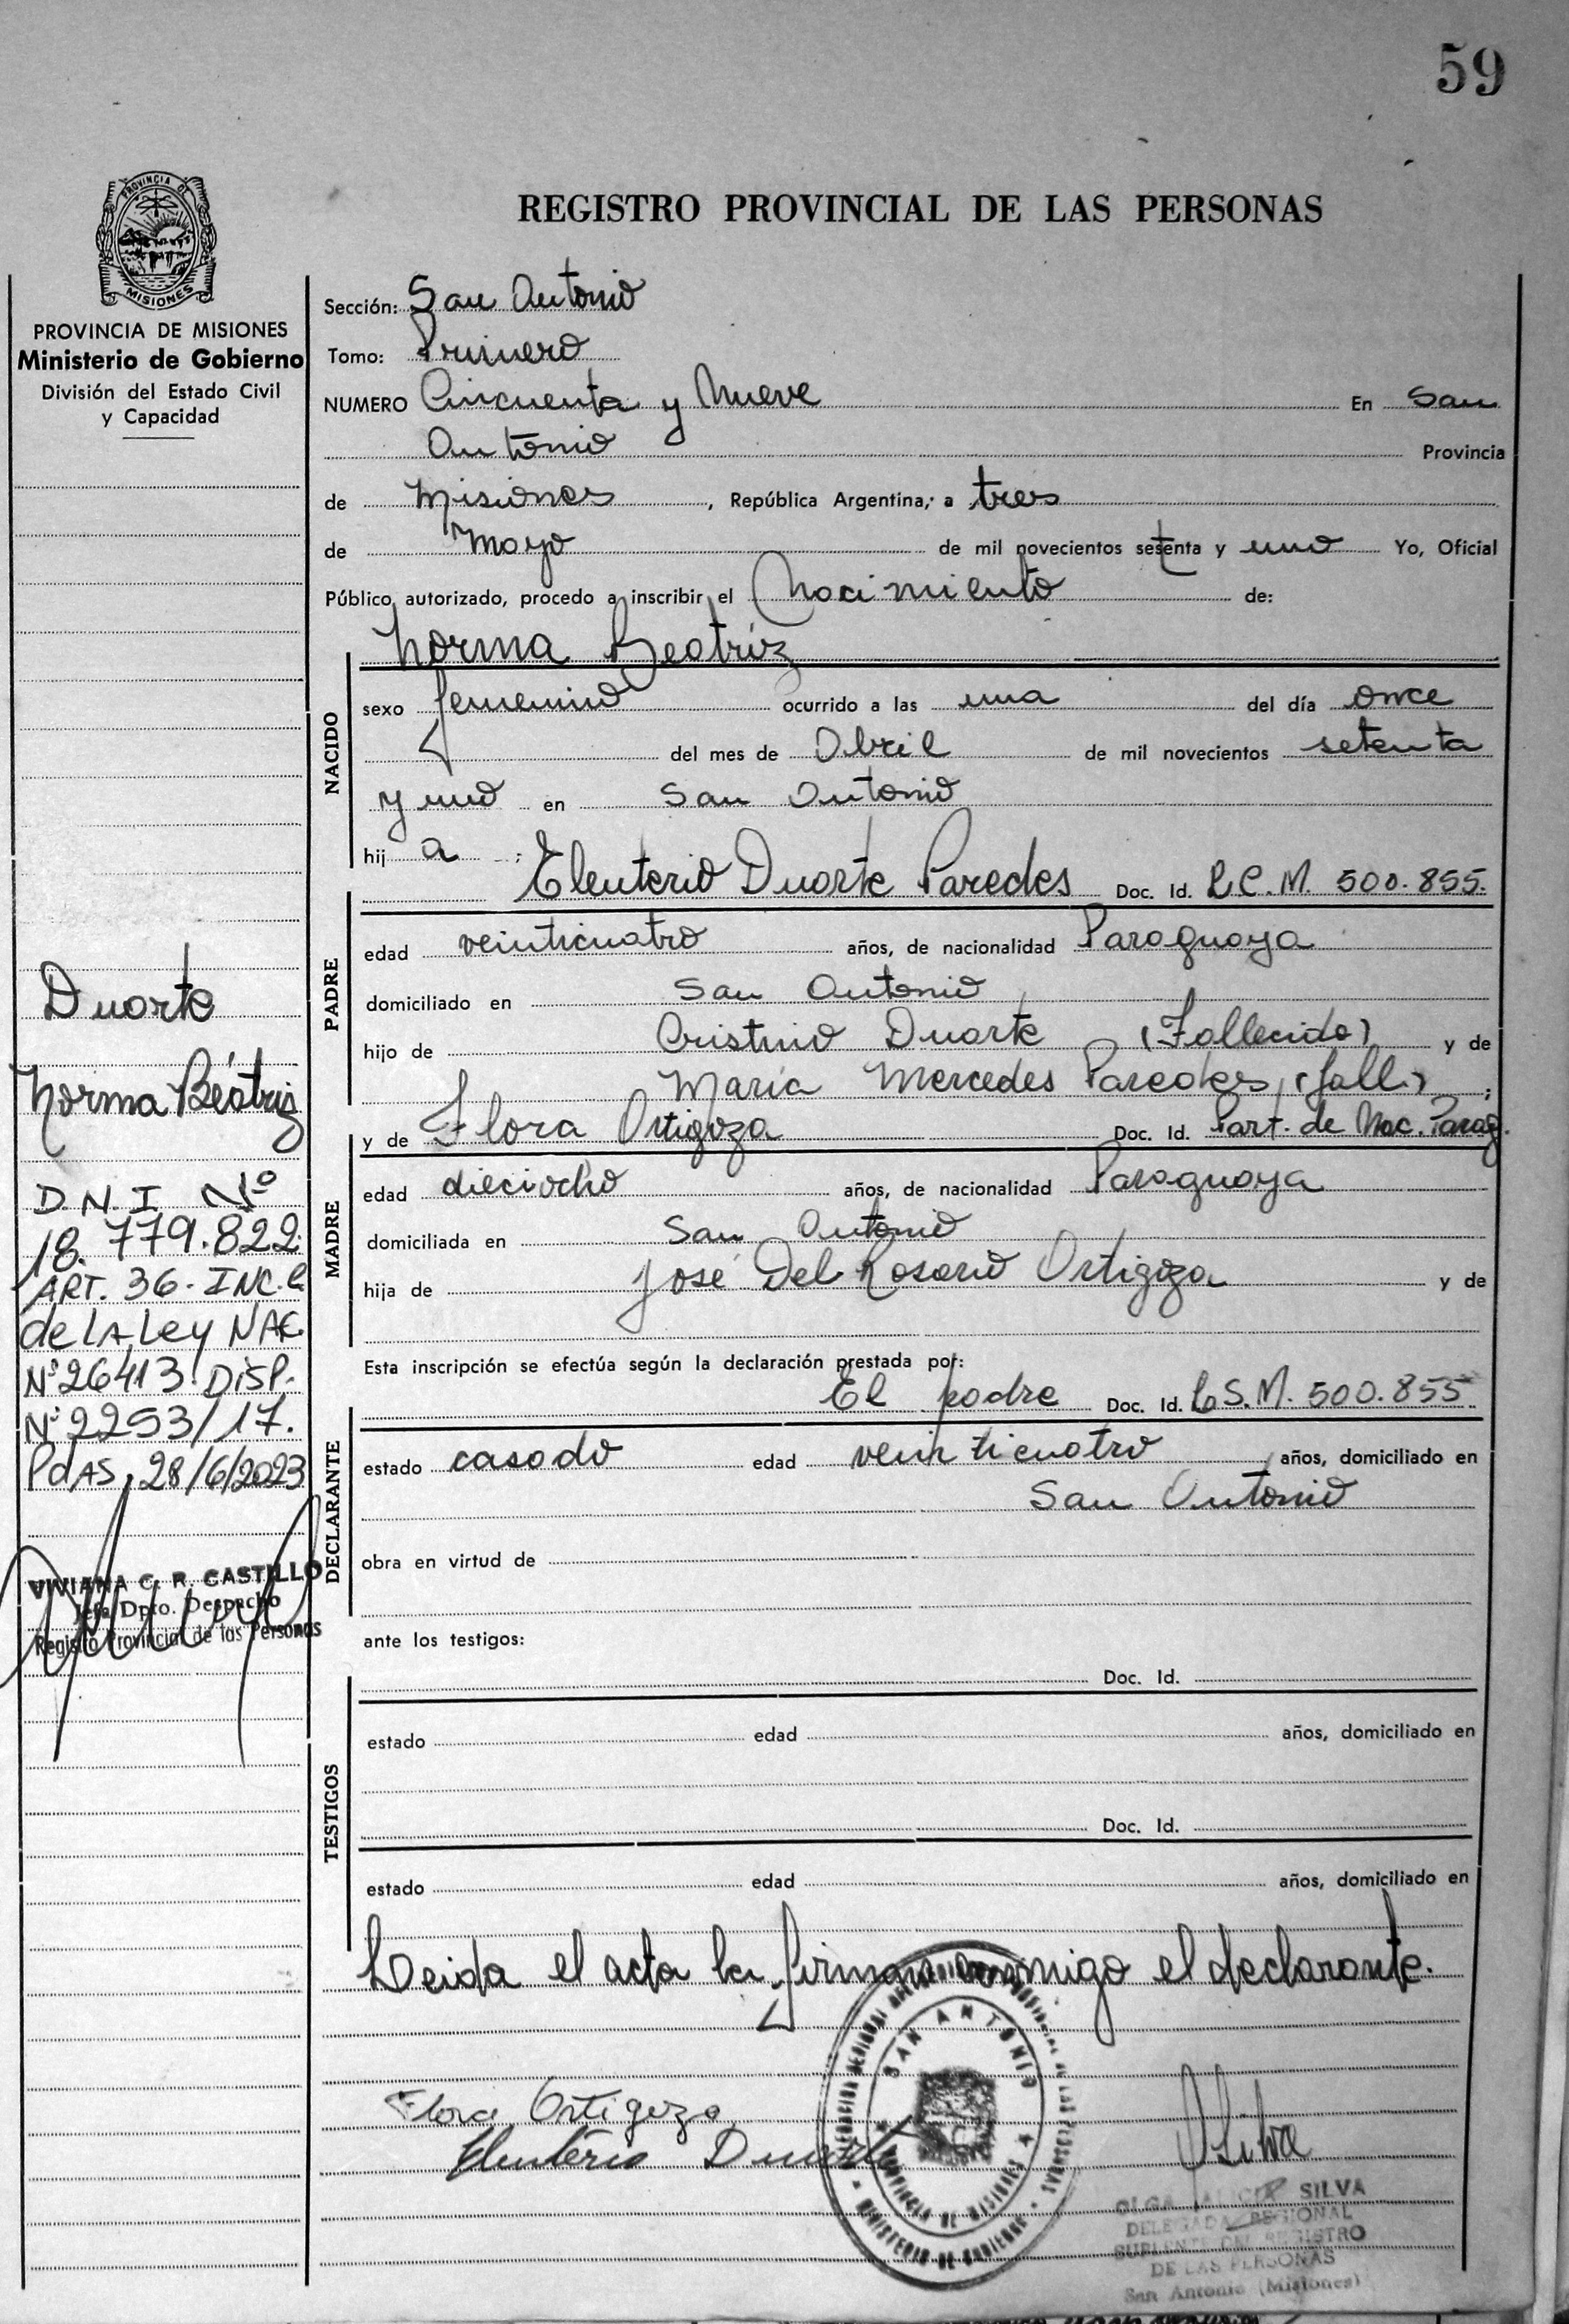 59
PROVINCIA DE
MISIONES
PROVINCIA DE MISIONES
Ministerio de Gobierno
División del Estado Civil
y Capacidad
REGISTRO PROVINCIAL DE LAS PERSONAS
Sección: San Antonio
Tomo: Primero
NUMERO Cincuenta y Nueve En San
Antonio Provincia
de Misiones, República Argentina, a tres
de Mayo de mil novecientos setenta y uno Yo, Oficial
Público autorizado, procedo a inscribir el Nacimiento de:
Norma Beatriz
NACIDO
sexo femenino ocurrido a las una del día once
del mes de Abril de mil novecientos setenta
y uno en San Antonio
hij a :
Eleuterio Duarte Paredes Doc. Id. L.C.M. 500.855.
PADRE
edad veinticuatro años, de nacionalidad Paraguaya
domiciliado en San Antonio
hijo de Cristino Duarte (Fallecido) y de
María Mercedes Paredes (fall.) ;
y de Flora Ortigoza Doc. Id. Part. de Nac. Parag.
MADRE
edad dieciocho años, de nacionalidad Paraguaya
domiciliada en San Antonio
hija de José Del Rosario Ortigoza y de
Esta inscripción se efectúa según la declaración prestada por:
El padre Doc. Id. S.M. 500.855
DECLARANTE
estado casado edad veinticuatro años, domiciliado en
San Antonio
obra en virtud de
ante los testigos:
Doc. Id.
TESTIGOS
estado edad años, domiciliado en
Doc. Id.
estado edad años, domiciliado en
Leida el acta la firman conmigo el declarante.
Flora Ortigoza
Eleuterio Duarte
SAN ANTONIO
PROVINCIA DE MISIONES
MINISTERIO DE GOBIERNO
Silva
OLGA ALICIA SILVA
DELEGADA REGIONAL
SUPLENTE DEL REGISTRO
DE LAS PERSONAS
San Antonio (Misiones)
Duarte
Norma Beatriz
D.N.I. Nº
18.779.822
ART. 36 - INC. C
de LA Ley NAC.
Nº 26413 DiSP.
Nº 2253/17.
PdAS, 28/6/2023
VIVIANA C. R. CASTILLO
Jefa Dpto. Despacho
Registro Provincial de las Personas